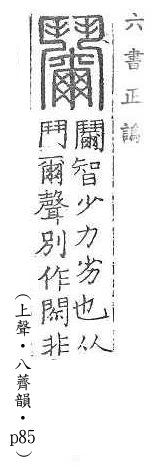 六書正譌
鬭
鬭智少力劣也从
鬥爾聲別作䦧非
（上聲・八薺韻・p85）